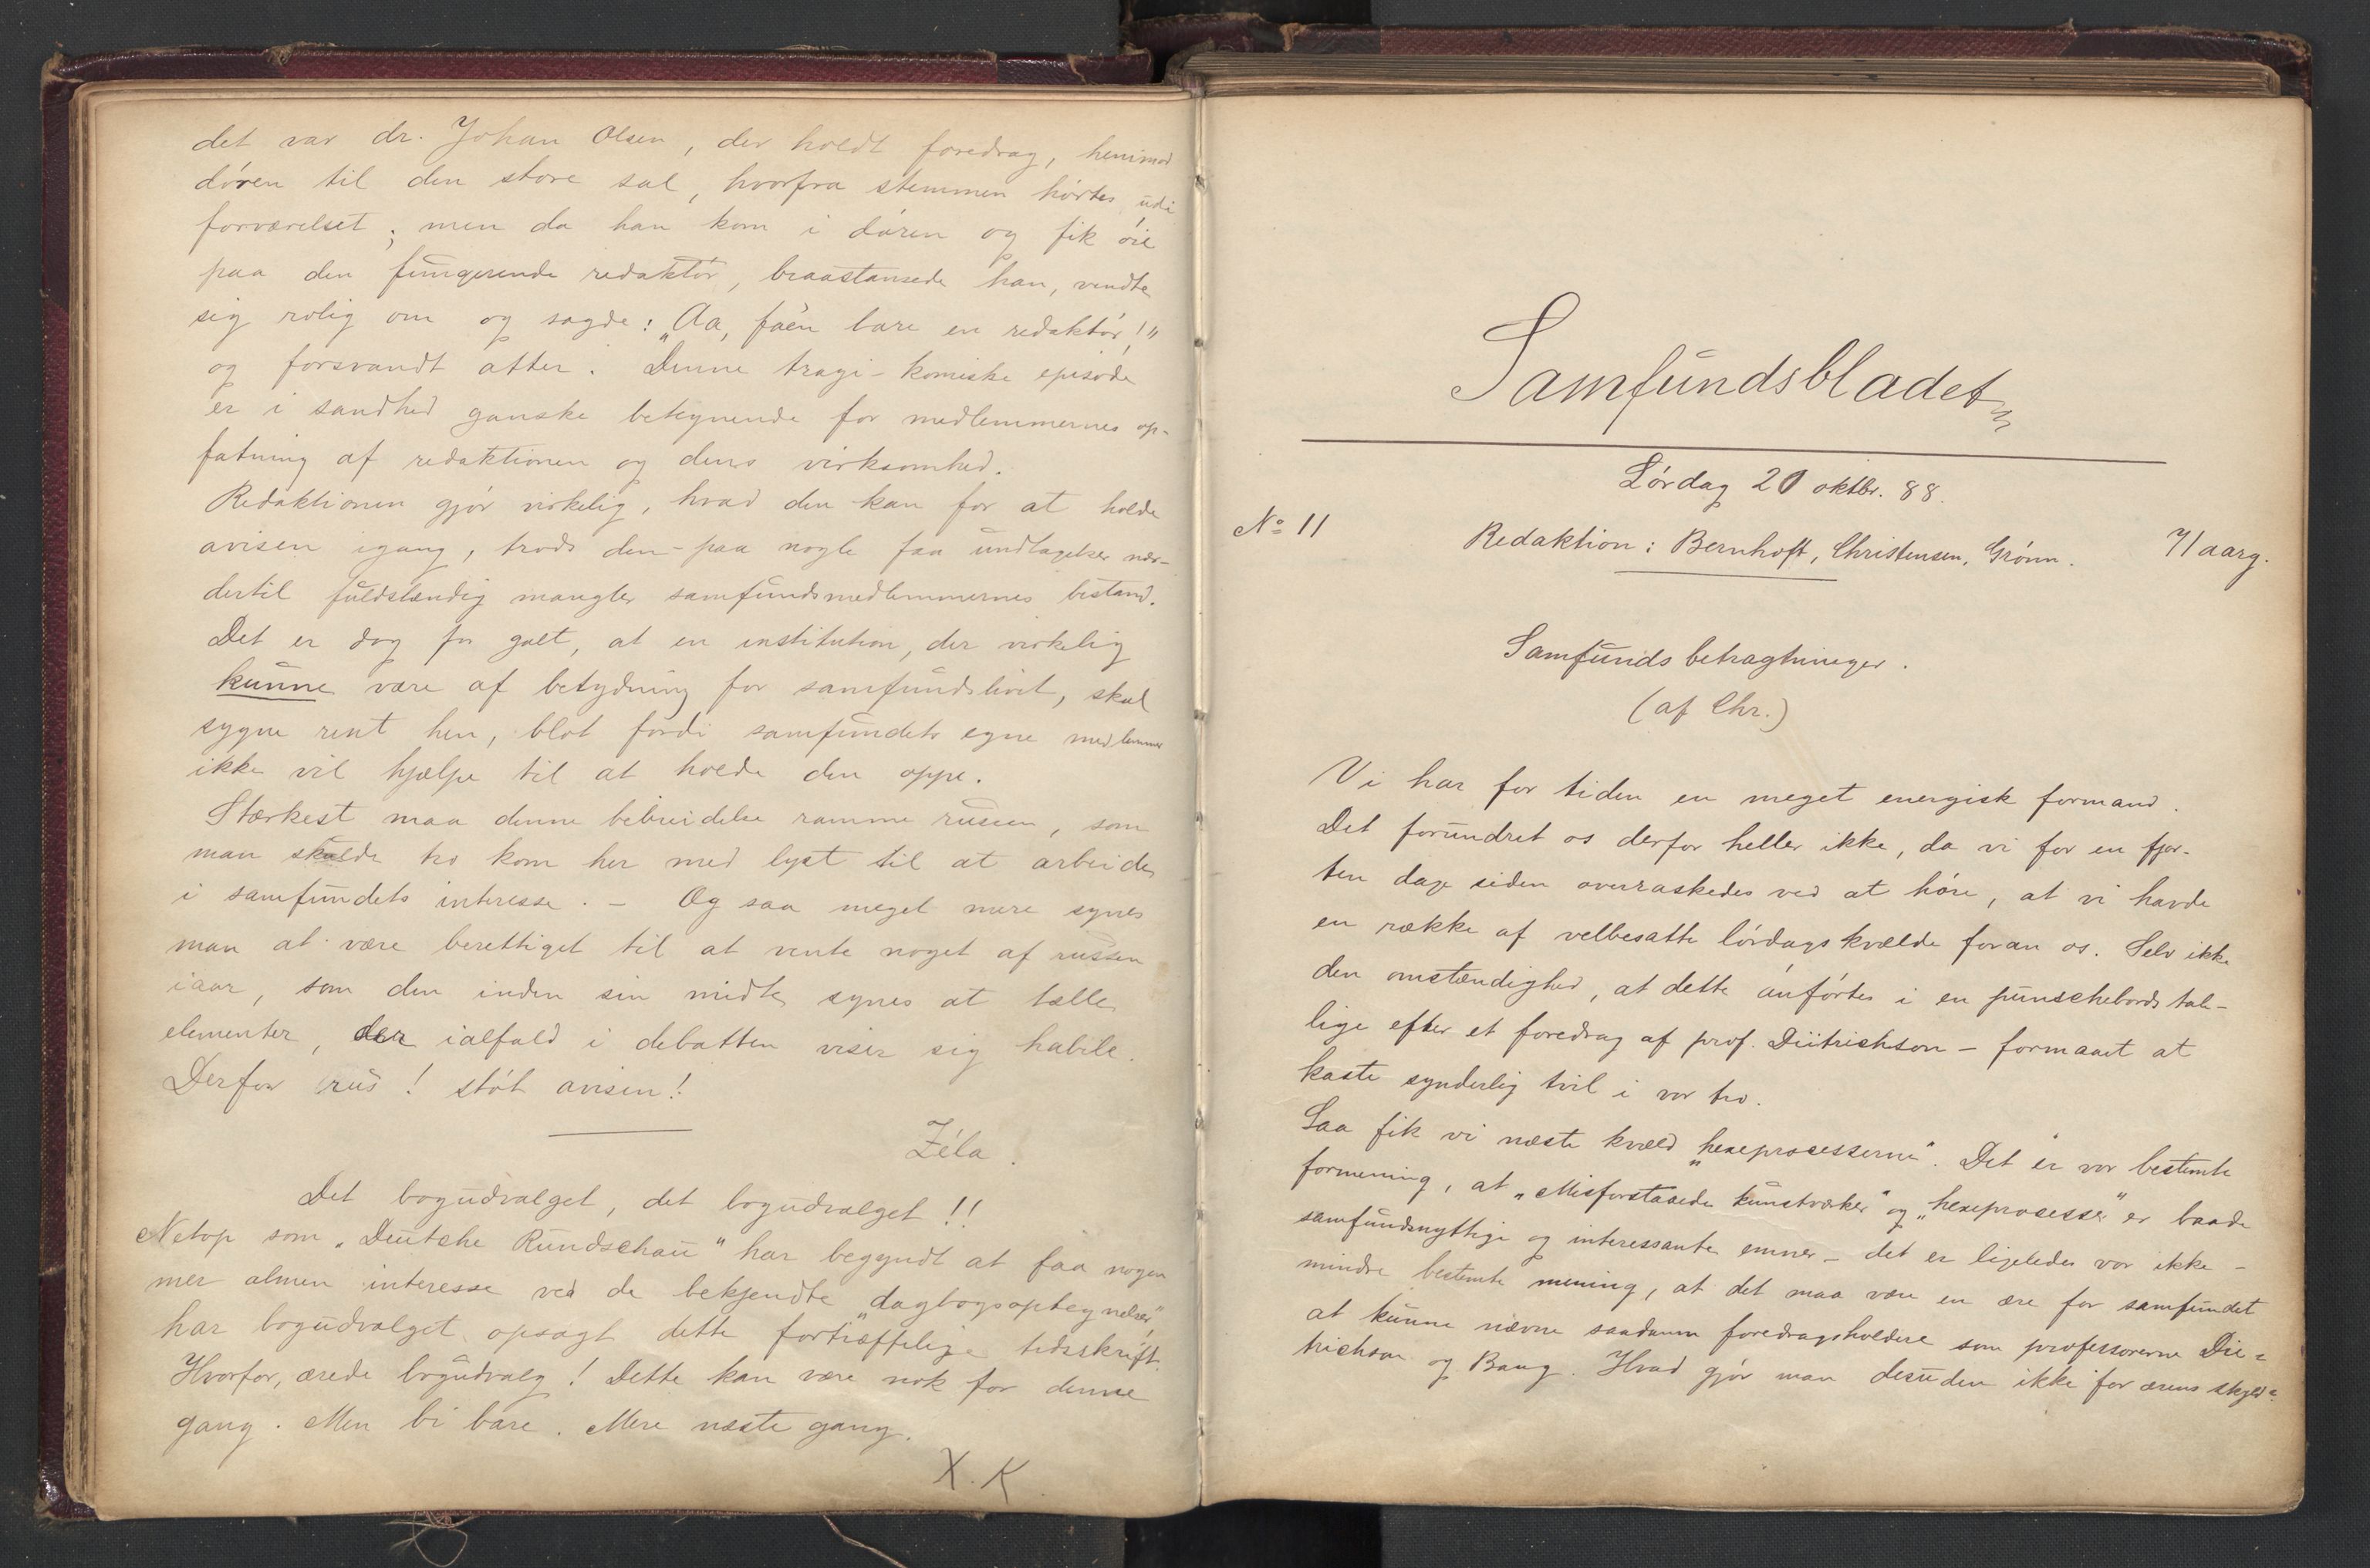 det var dr. Johan Olsen, der holdt foredrag, henimod
døren til den store sal, hvorfra stemmen hørtes udi
forværelset; men da han kom i døren og fik øie
paa den fungerende redaktør, braastansede han, vendte
sig rolig om og sagde: „Aa, faën bare en redaktør!"
og forsvandt atter. Denne tragi-komiske episode
er i sandhed ganske betegnende for medlemmernes op-
fatning af redaktionen og dens virksomhed.
Redaktionen gjør virkelig, hvad den kan for at holde
avisen igang, trods den - paa nogle faa undtagelser nær -
dertil fuldstændig mangler samfundsmedlemmernes bistand.
Det er dog for galt, at en institution, der virkelig
kunne være af betydning for samfundslivet, skal
sygne rent hen, blot fordi samfundets egne medlemmer
ikke vil hjælpe til at holde den oppe.
Stærkest maa denne bebreidelse ramme russen, som
man skulde tro kom her med lyst til at arbeide
i samfundets interesse. - Og saa meget mere synes
man at være berettiget til at vente noget af russen
iaar, som den inden sin midte synes at tælle
elementer, der ialfald i debatten viser sig habile.
Derfor rus! støt avisen!
Zéla.
Det bogudvalget, det bogudvalget!!
Netop som „Deutche Rundschau" har begyndt at faa nogen
mer almen interesse ved de bekjendte „dagbogsoptegnelser",
har bogudvalget opsagt dette fortræffelige tidsskrift.
Hvorfor, ærede bogudvalg! Dette kan være nok for denne
gang. Men bi bare. Mere næste gang.
X. K
Samfundsbladet
Lørdag 20 oktbr. 88.
No 11
Redaktion: Bernhoft, Christensen, Grønn.
7/aarg.
Samfundsbetragtninger.
(af Chr.)
Vi har for tiden en meget energisk formand.
Det forundret os derfor heller ikke, da vi for en fjor-
ten dage siden overraskedes ved at høre, at vi havde
en række af velbesatte lørdagskvælde foran os. Selv ikke
den omstændighed, at dette anførtes i en punschebordstale -
lige efter et foredrag af prof. Diitrichson - formaaet at
kaste synderlig tvil i vor tro.
Saa fik vi næste kvæld „hexeprosesserne". Det er vor bestemte
formening, at „Misforstaaede kunstværker" og „hexeprosesser" er baade
samfundsnyttige og interessante emner - det er ligeledes vor ikke -
mindre bestemte mening, at det maa være en ære for samfundet
at kunne nævne saadanne foredragsholdere som professorerne Die=
trichson og Bang. Hvad gjør man desuden ikke for ærens skyld?